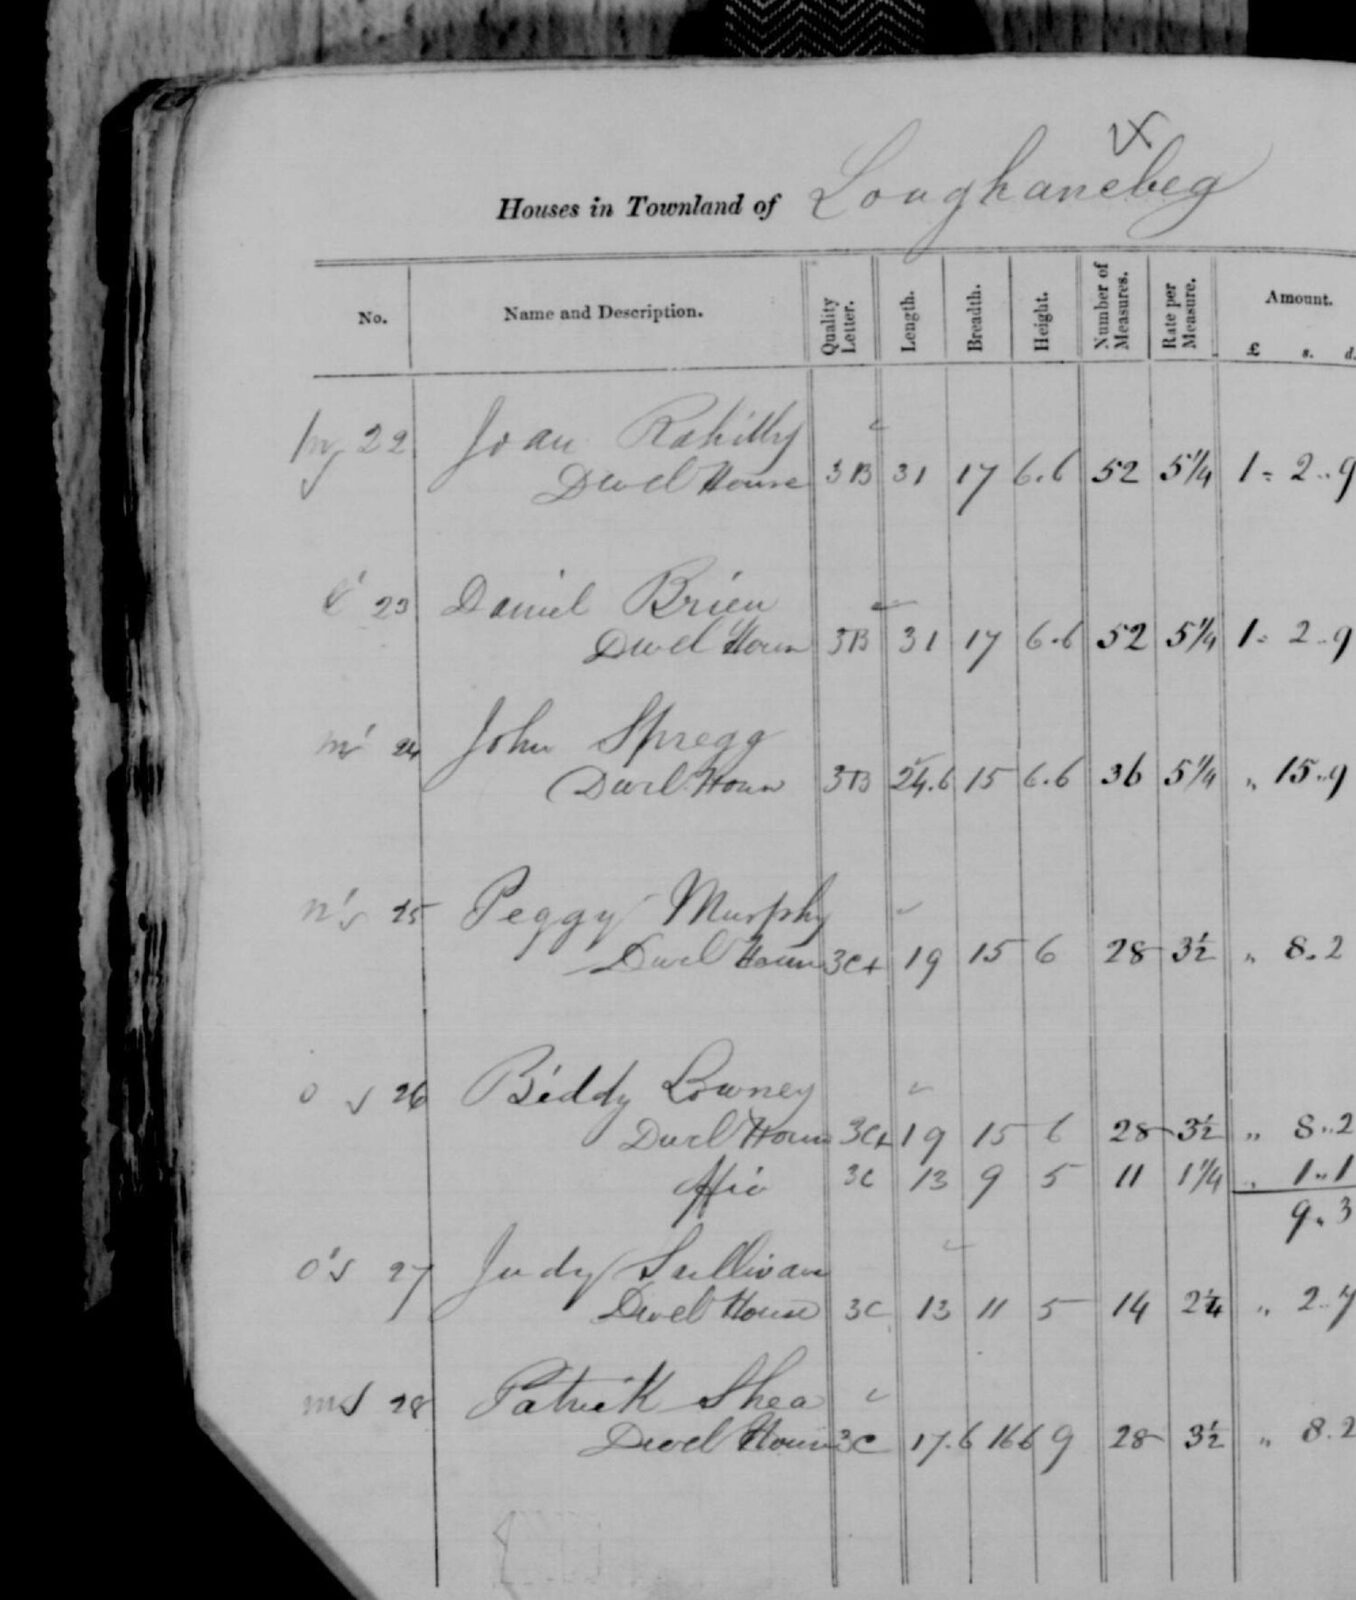 Houses in Townland of Loughanebeg
No. Name and Description. Quality Letter. Length. Breadth. Height. Number of Measures. Rate per Measure. Amount.
£ s. d.
22 Joan Rahilly
Dwel House 3B 31 17 6.6 52 5¼ 1 = 2 .. 9
23 Daniel Brien
Dwel House 3B 31 17 6.6 52 5¼ 1 = 2 .. 9
24 John Spregg
Dwel House 3B 24.6 15 6.6 36 5¼ „ 15 .. 9
25 Peggy Murphy
Dwel House 3C+ 19 15 6 28 3½ „ 8.2
26 Biddy Lowney
Dwel House 3C+ 19 15 6 28 3½ „ 8..2
3C 13 9 5 11 1¼ „ 1..1
9.3
27 Judy Sullivan
Dwel House 3C 13 11 5 14 2¼ „ 2..7
28 Patrick Shea
Dwel House 3C 17.6 16 6 9 28 3½ „ 8.2